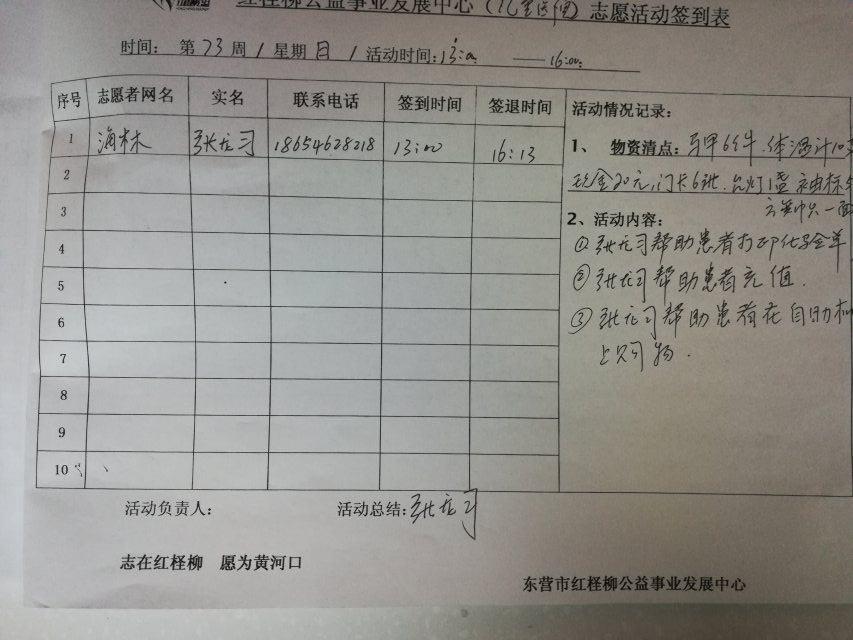 红柽柳公益事业发展中心（ ）志愿活动签到表
时间：第 73 周 / 星期 日 / 活动时间：13:00 —— 16:00
序号 志愿者网名 实名 联系电话 签到时间 签退时间 活动情况记录：
1 海林 张龙习 18654628218 13:00 16:13 1、物资清点：马甲6件、体温计10支
2 现金20元，门卡6张、台灯1盏 袖标
3 2、活动内容：
4 ①张龙习帮助患者打印化验单
5 ②张龙习帮助患者充值.
6 ③张龙习帮助患者在自助机
7 上购物.
8
9
10
活动负责人： 活动总结：张龙习
志在红柽柳 愿为黄河口
东营市红柽柳公益事业发展中心